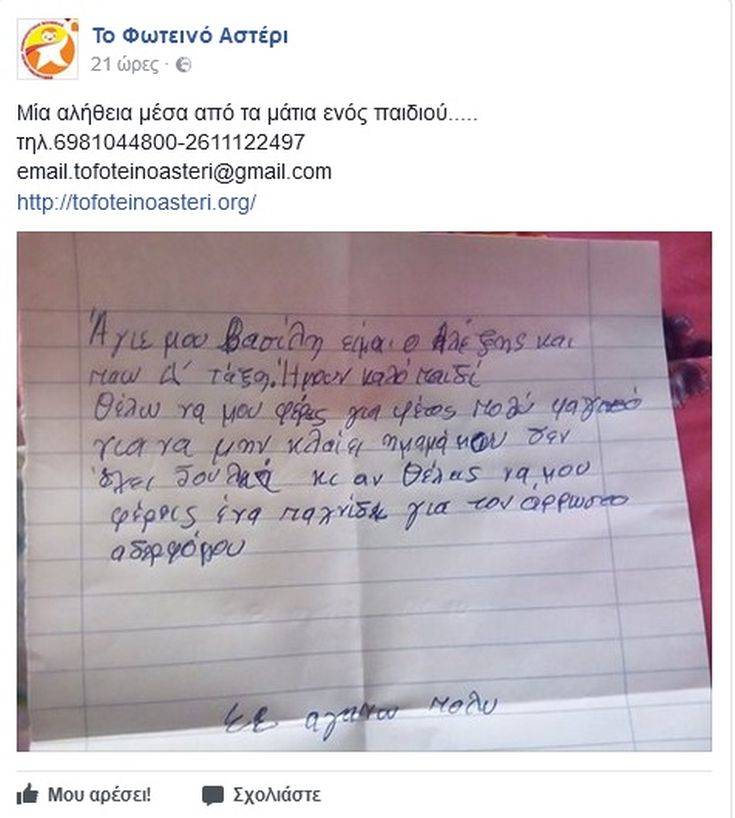 Το Φωτεινό Αστέρι
21 ώρες ·
Μία αλήθεια μέσα από τα μάτια ενός παιδιού.....
τηλ.6981044800-2611122497
email.tofoteinoasteri@gmail.com
http://tofoteinoasteri.org/
Άγιε μου Βασίλη είμαι ο Αλέξης και
παω Α΄ τάξη. Ήμουν καλό παιδί
Θέλω να μου φέρεις για φέτος πολύ φαγητό
για να μην κλαίει η μαμά μου δεν
έχει δουλειά κι αν θέλεις να μου
φέρεις ένα παιχνίδι για τον άρρωστο
αδερφό μου
Σε αγαπω πολυ
Μου αρέσει!
Σχολιάστε